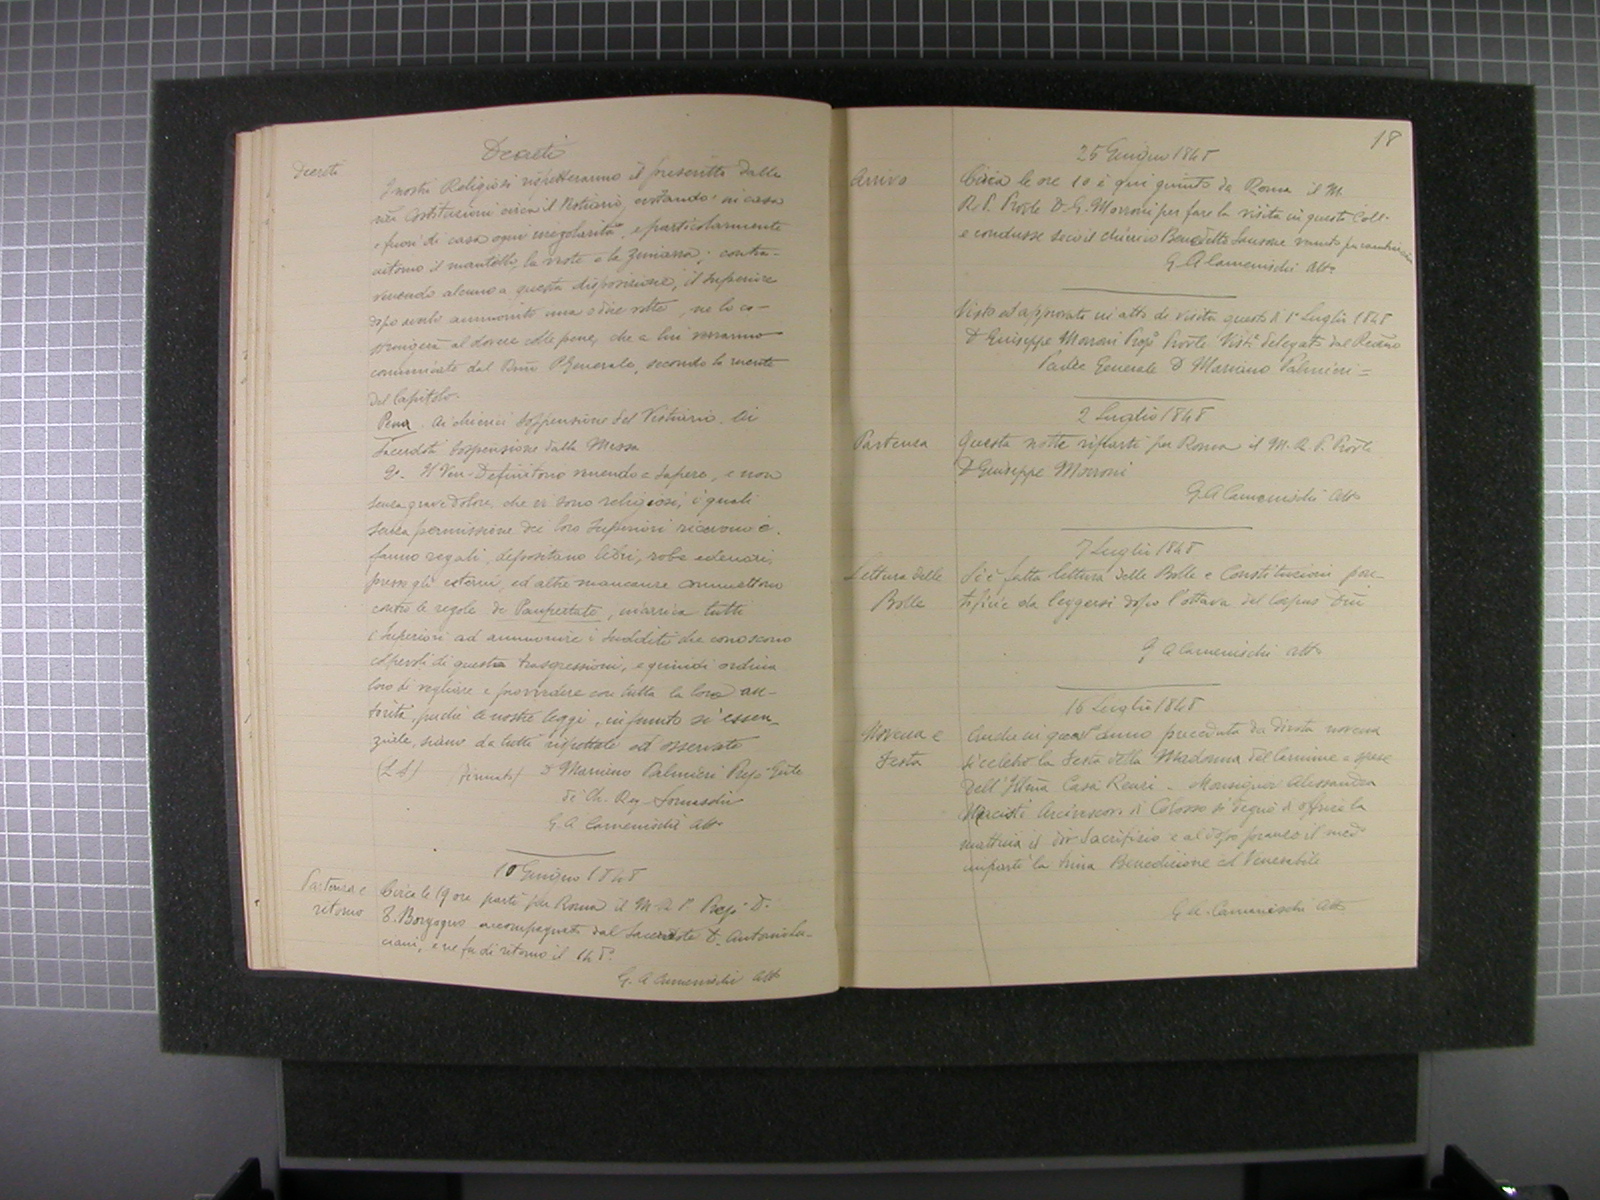 Decreti
Decreti
I nostri Religiosi rispetteranno il prescritto dalle
nre Costituzioni circa il Vestiario, evitando in casa
e fuori di casa ogni irregolarità, e particolarmente
intorno il mantello, la veste e la zimarra; contra-
venendo alcuno a questa disposizione, il Superiore
dopo averli ammonito una o due volte, ne lo co-
stringerà al dovere colle pene, che a lui verranno
comunicate dal Rmo P. Generale, secondo la mente
del Capitolo.
Pena. Ai chierici sospensione del Vestiario. Ai
Sacerdoti sospensione dalla Messa
2. Il Ven. Definitorio venendo a sapere, e non
senza grave dolore, che vi sono religiosi, i quali
senza permissione dei loro Superiori ricevono e
fanno regali, depositano libri, robe e denari
presso gli esterni, ed altre mancanze commettono
contro le regole de Paupertate, incarica tutti
i Superiori ad ammonire i sudditi che conoscono
colpevoli di queste trasgressioni, e quindi ordina
loro di vegliare e provvedere con tutta la loro au-
torità, perchè le nostre leggi, in punto sì essen-
ziale, siano da tutti rispettate ed osservate
(L S) (firmato) D. Mariano Palmieri Prep. Gnle
de' Ch. Reg. Somaschi
G. A Camenischi Att.
10 Giugno 1848
Partenza e
ritorno
Circa le 19 ore partì per Roma il M. R. P. Prep. D.
T. Borgogno accompagnato dal Sacerdote D. Antonio Lu-
ciani, e ne fu di ritorno il 14 do
G. A Camenischi Att.
18
25 Giugno 1848
Arrivo
Circa le ore 10 è qui giunto da Roma il M.
R. P. Provle D. G. Morroni per fare la visita in questo Coll.
e condusse seco il chierico Benedetto Sansone venuto per
G. A Camenischi Att.
Visto ed approvato in atto di visita questo dì 1° Luglio 1848
D. Giuseppe Morroni Prep. Provle Visit. delegato dal Rmo
Padre Generale D Mariano Palmieri =
2 Luglio 1848
Partenza
Questa notte ripartì per Roma il M. R. P. Provle
D Giuseppe Morroni
G. A Camenischi Att.
7 Luglio 1848
Lettura delle
Bolle
Si è fatta lettura delle Bolle e Constituzioni pon-
tificie da leggersi dopo l'ottava del Corpus Dni
G. A Camenischi Att.
16 Luglio 1848
Novena e
Festa
Anche in quest'anno preceduta da divota novena
si celebrò la Festa della Madonna del Carmine a spese
dell'Illma Casa Renzi. Monsignor Alessandro
Macioti Arcivescovo di Colosso si degnò di offrire la
mattina il div. Sacrifizio e al dopo pranzo il med.
impartì la trina Benedizione col Venerabile
G. A. Camenischi Att.